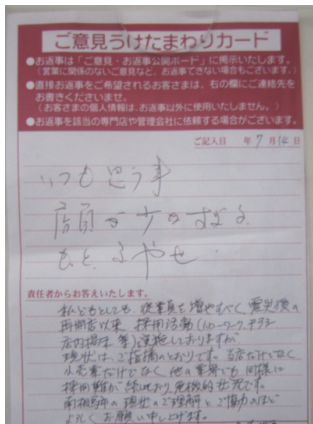 ご意見うけたまわりカード
●お返事は「ご意見・お返事公開ボード」に掲示いたします。
（営業に関係のないご意見など、お返事できない場合もございます。）
●直接お返事をご希望されるお客さまは、右の欄にご連絡先を
お書きくださいませ。
（お客さまの個人情報は、お返事以外に使用いたしません。）
●お返事を該当の専門店や管理会社に依頼する場合がございます。
ご記入日 年 7 月 14 日
いつも思う事
店員が少のすぎる
もっとふやせ
責任者からお答えいたします。
私どもとしても、従業員を増やすべく、震災後の
再開店以来、採用活動（ハローワーク、チラシ
店内掲示 等）を実施しておりますが
現状は、ご指摘のとおりです。当店だけでなく
小売業だけでなく 他の業界でも 同様に
採用難が続いており、危機的な状況です。
南相馬市の現状のご理解とご協力のほど
よろしくお願い申し上げます。